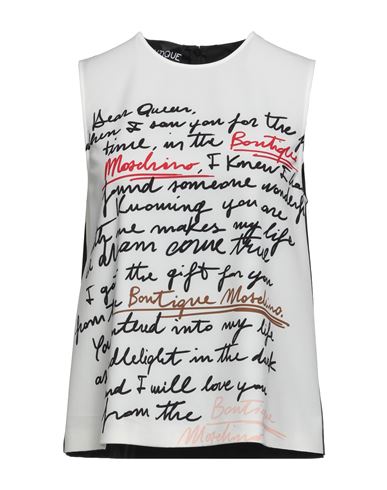 QUE
Dear Queen,
when I saw you for the
time, in the Boutique
Moschino, I knew I ha
found someone wonderf
Knowing you are
me makes my life
a dream come true
I got the gift for you
from the Boutique Moschino.
You entend into my life
as dlelight in the dark
and I will love you
from the Boutique
Moschino